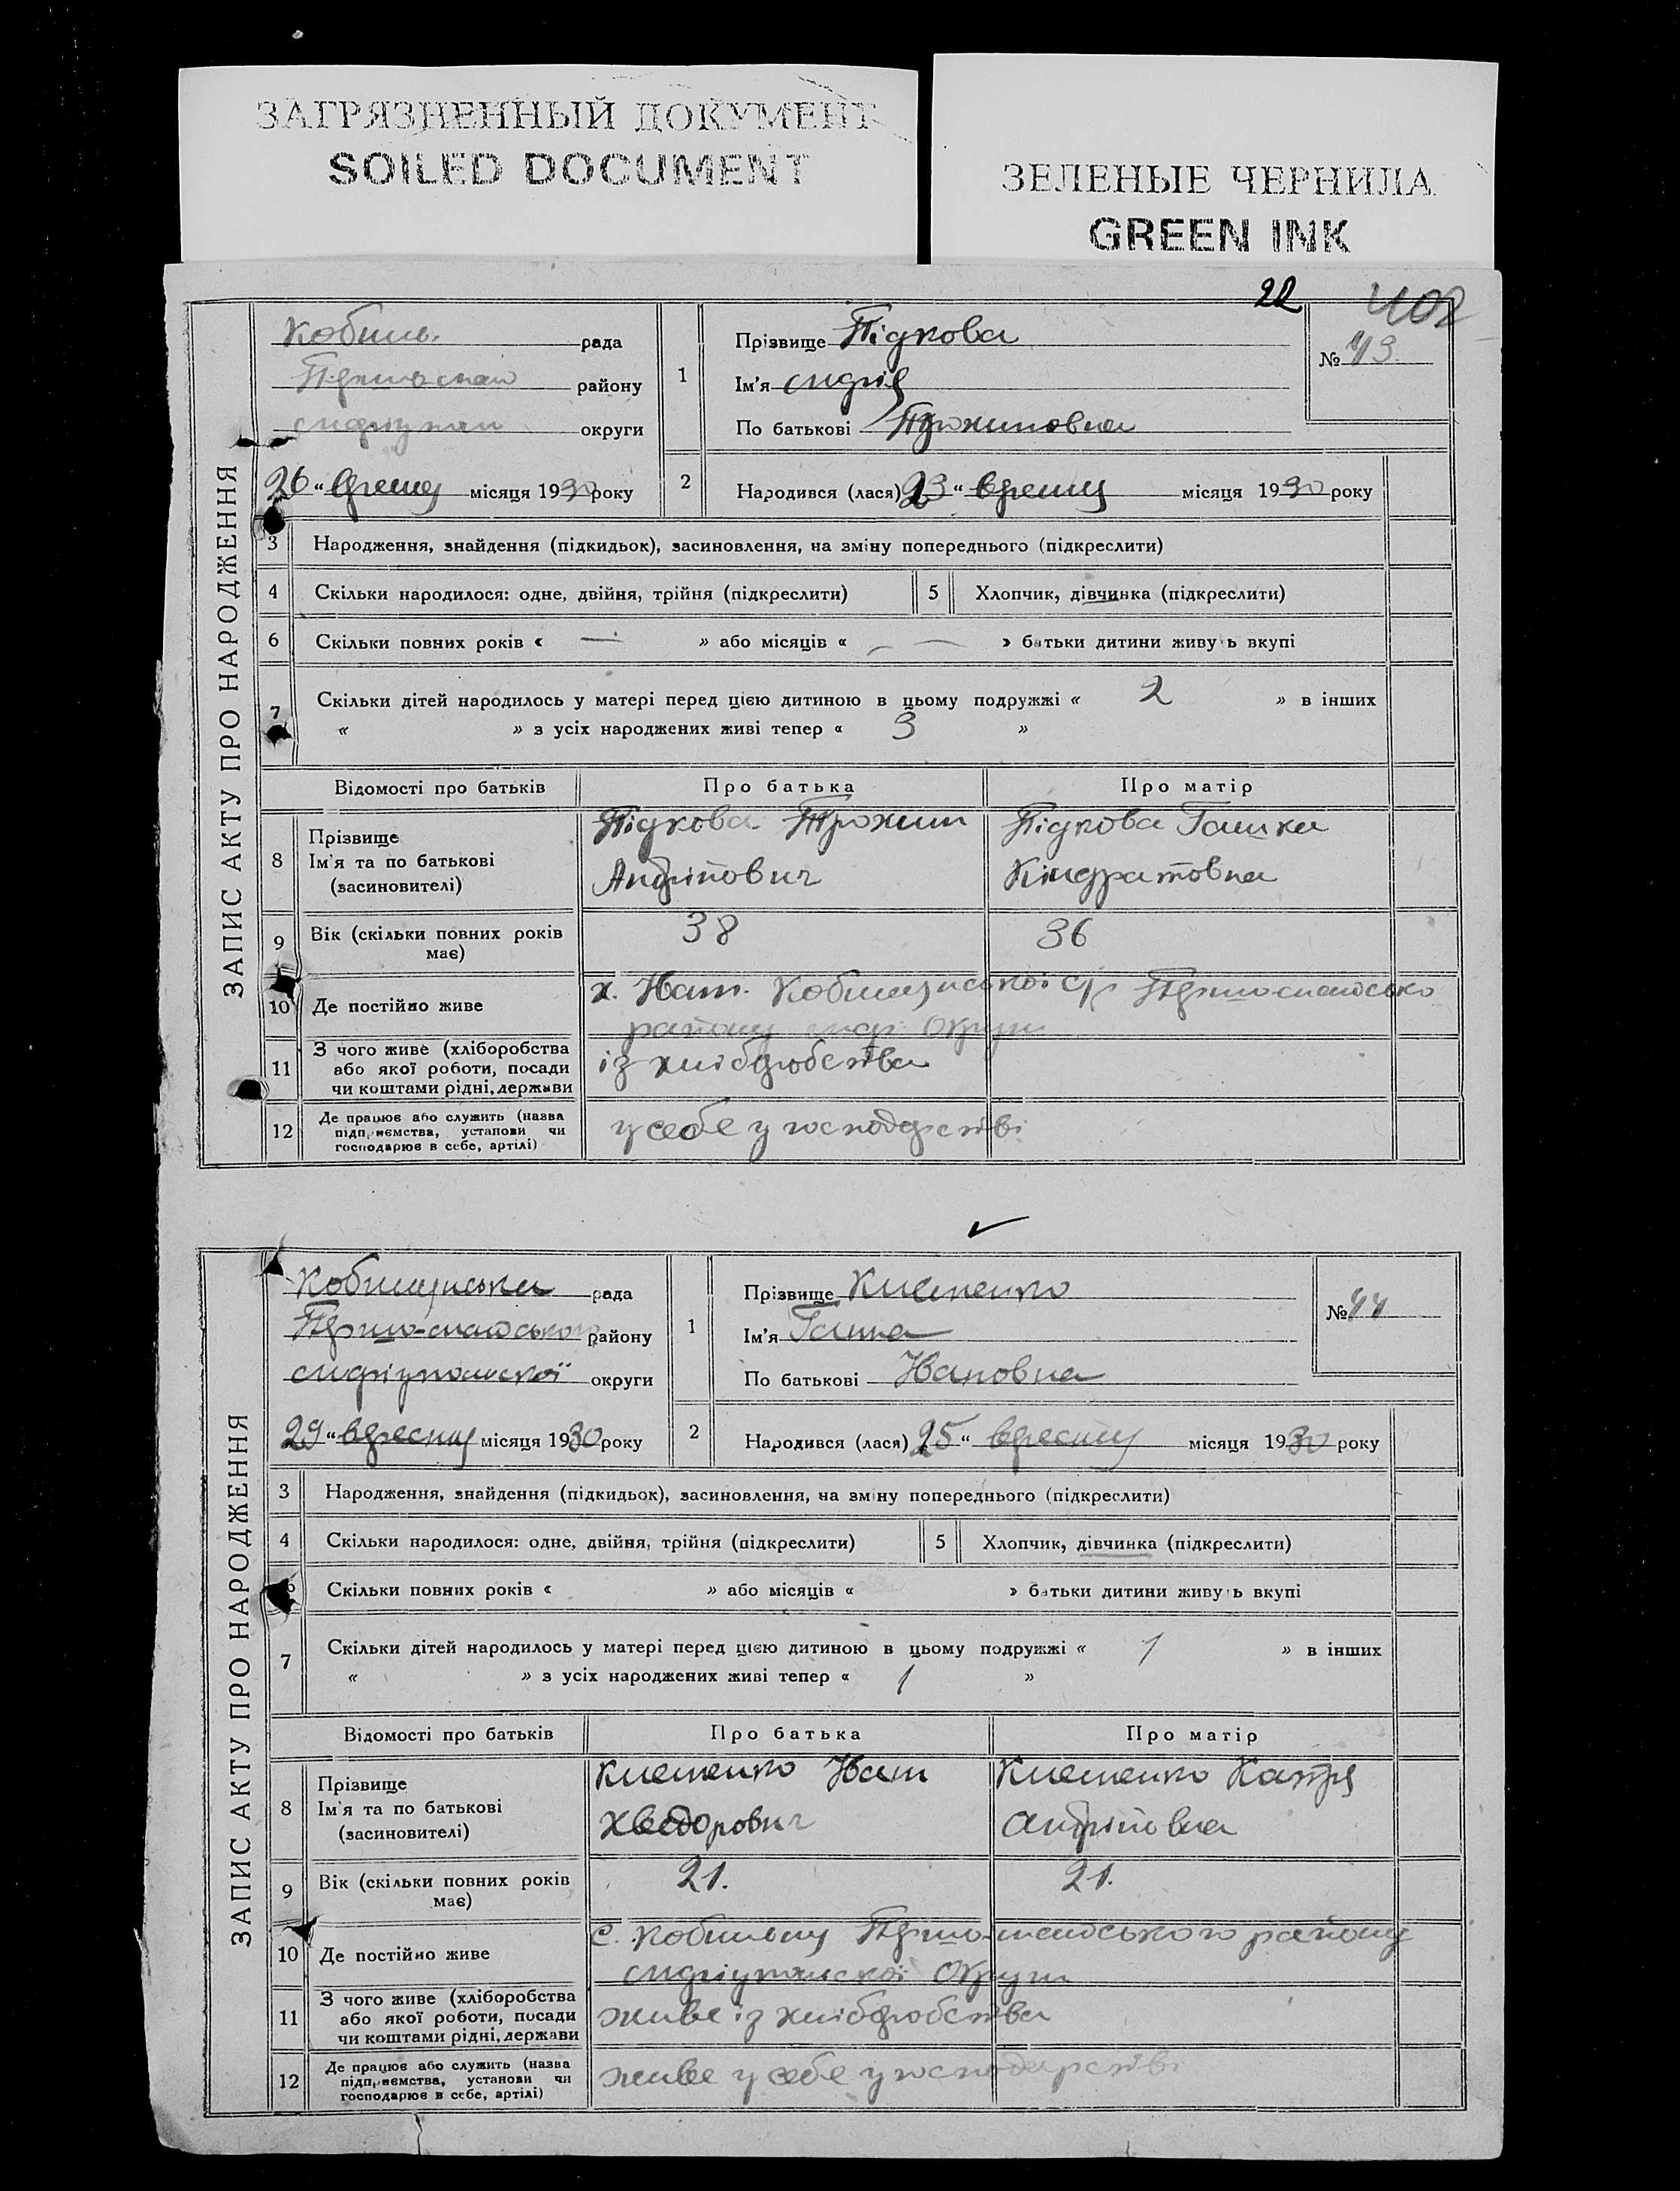 ЗАГРЯЗНЕННЫЙ ДОКУМЕНТ
SOILED DOCUMENT
ЗЕЛЕНЫЕ ЧЕРНИЛА
GREEN INK
22 402
ЗАПИС АКТУ ПРО НАРОДЖЕННЯ
рада
району
округи
26 “ місяця 1930 року
1 Прізвище Підкова
Ім'я
По батькові
№ 43
2 Народився (лася) 23 “ місяця 1930 року
3 Народження, знайдення (підкидьок), засиновлення, на зміну попереднього (підкреслити)
4 Скільки народилося: одне, двійня, трійня (підкреслити) 5 Хлопчик, дівчинка (підкреслити)
6 Скільки повних років « — » або місяців « — » батьки дитини живуть вкупі
7 Скільки дітей народилось у матері перед цією дитиною в цьому подружжі « 2 » в інших
« » з усіх народжених живі тепер « 3 »
Відомості про батьків Про батька Про матір
8 Прізвище Ім'я та по батькові (засиновителі)
Підкова Трохим Підкова Гашка
Андрійович Кіндратовна
9 Вік (скільки повних років має) 38 36
10 Де постійно живе
х.
району Округи
11 З чого живе (хліборобства або якої роботи, посади чи коштами рідні, держави
із хліборобства
12 Де працює або служить (назва підприємства, установи чи господарює в себе, артілі)
у себе у господарстві
ЗАПИС АКТУ ПРО НАРОДЖЕННЯ
рада
району
округи
29 “ вересня місяця 1930 року
1 Прізвище Клеменко
Ім'я Ганна
По батькові Івановна
№ 44
2 Народився (лася) 25 “ вересня місяця 1930 року
3 Народження, знайдення (підкидьок), засиновлення, на зміну попереднього (підкреслити)
4 Скільки народилося: одне, двійня, трійня (підкреслити) 5 Хлопчик, дівчинка (підкреслити)
6 Скільки повних років « » або місяців « » батьки дитини живуть вкупі
7 Скільки дітей народилось у матері перед цією дитиною в цьому подружжі « 1 » в інших
« » з усіх народжених живі тепер « 1 »
Відомості про батьків Про батька Про матір
8 Прізвище Ім'я та по батькові (засиновителі)
Клеменко Іван Клеменко Катря
Хведорович Андрійовна
9 Вік (скільки повних років має) 21. 21.
10 Де постійно живе
с. району
Округи
11 З чого живе (хліборобства або якої роботи, посади чи коштами рідні, держави
живе із хліборобства
12 Де працює або служить (назва підприємства, установи чи господарює в себе, артілі)
живе у себе у господарстві